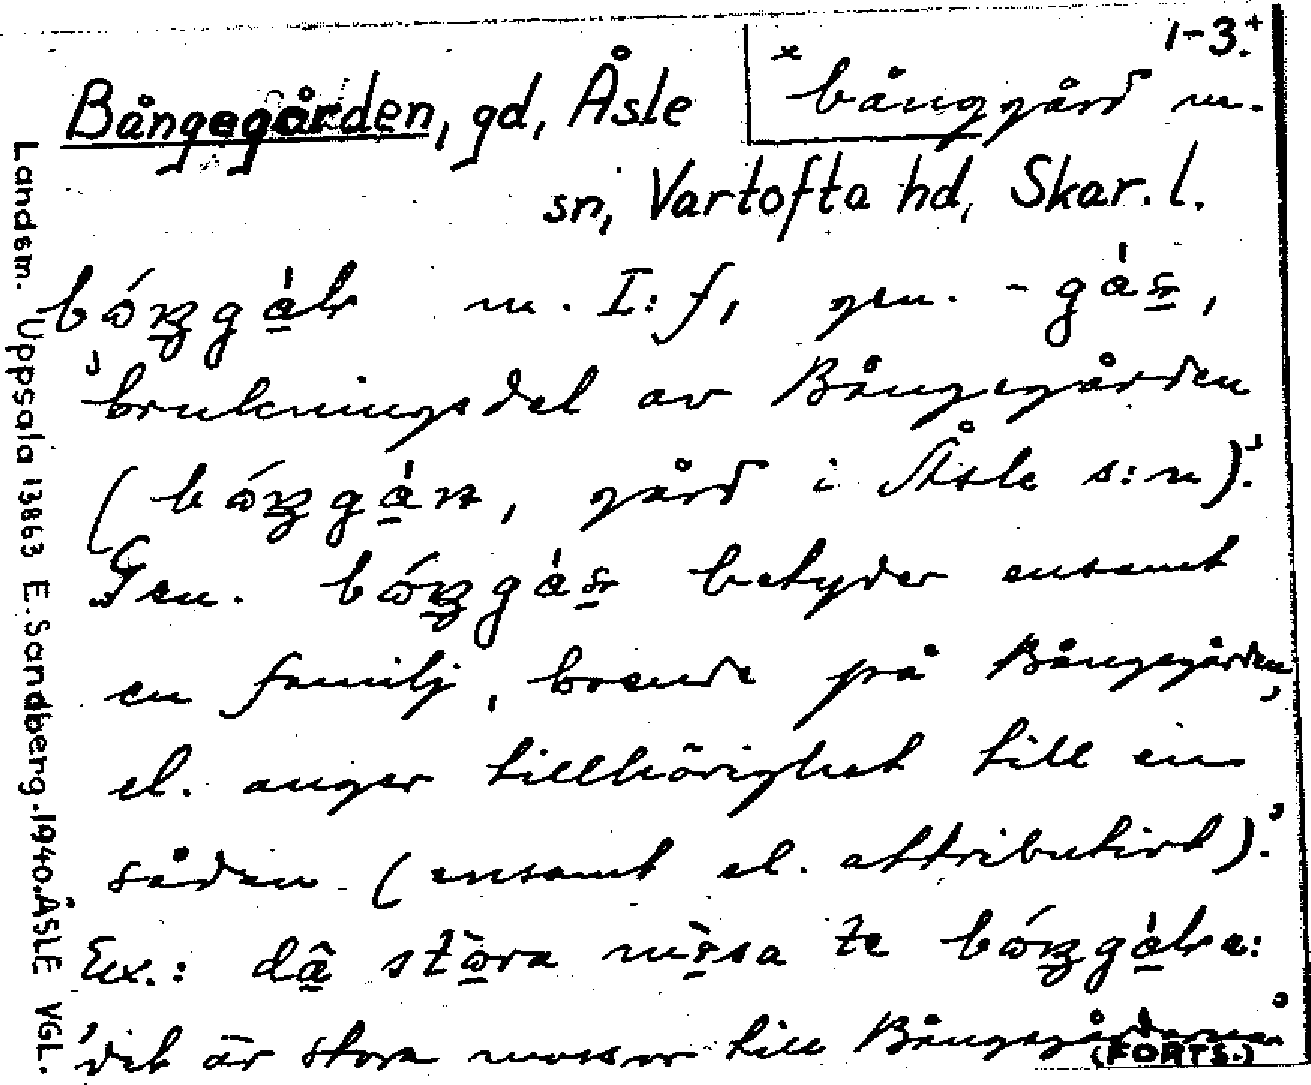 1-3.+
Bångegården, gd, Åsle
× bånggård m.
sn, Vartofta hd, Skar. l.
m. I: f, gen.
'brukningsdel av Bångegården
gård i Åsle s:n).'
Gen. betyder ensamt
en familj, boende på Bångegården,
el. anger tillhörighet till en
sådan (ensamt el. attributivt).'
Ex.: stora te
'det är stora mossor till Bångegårdarna'
(FORTS.)
Landsm. Uppsala 13863 E. Sandberg. 1940. ÅSLE VGL.